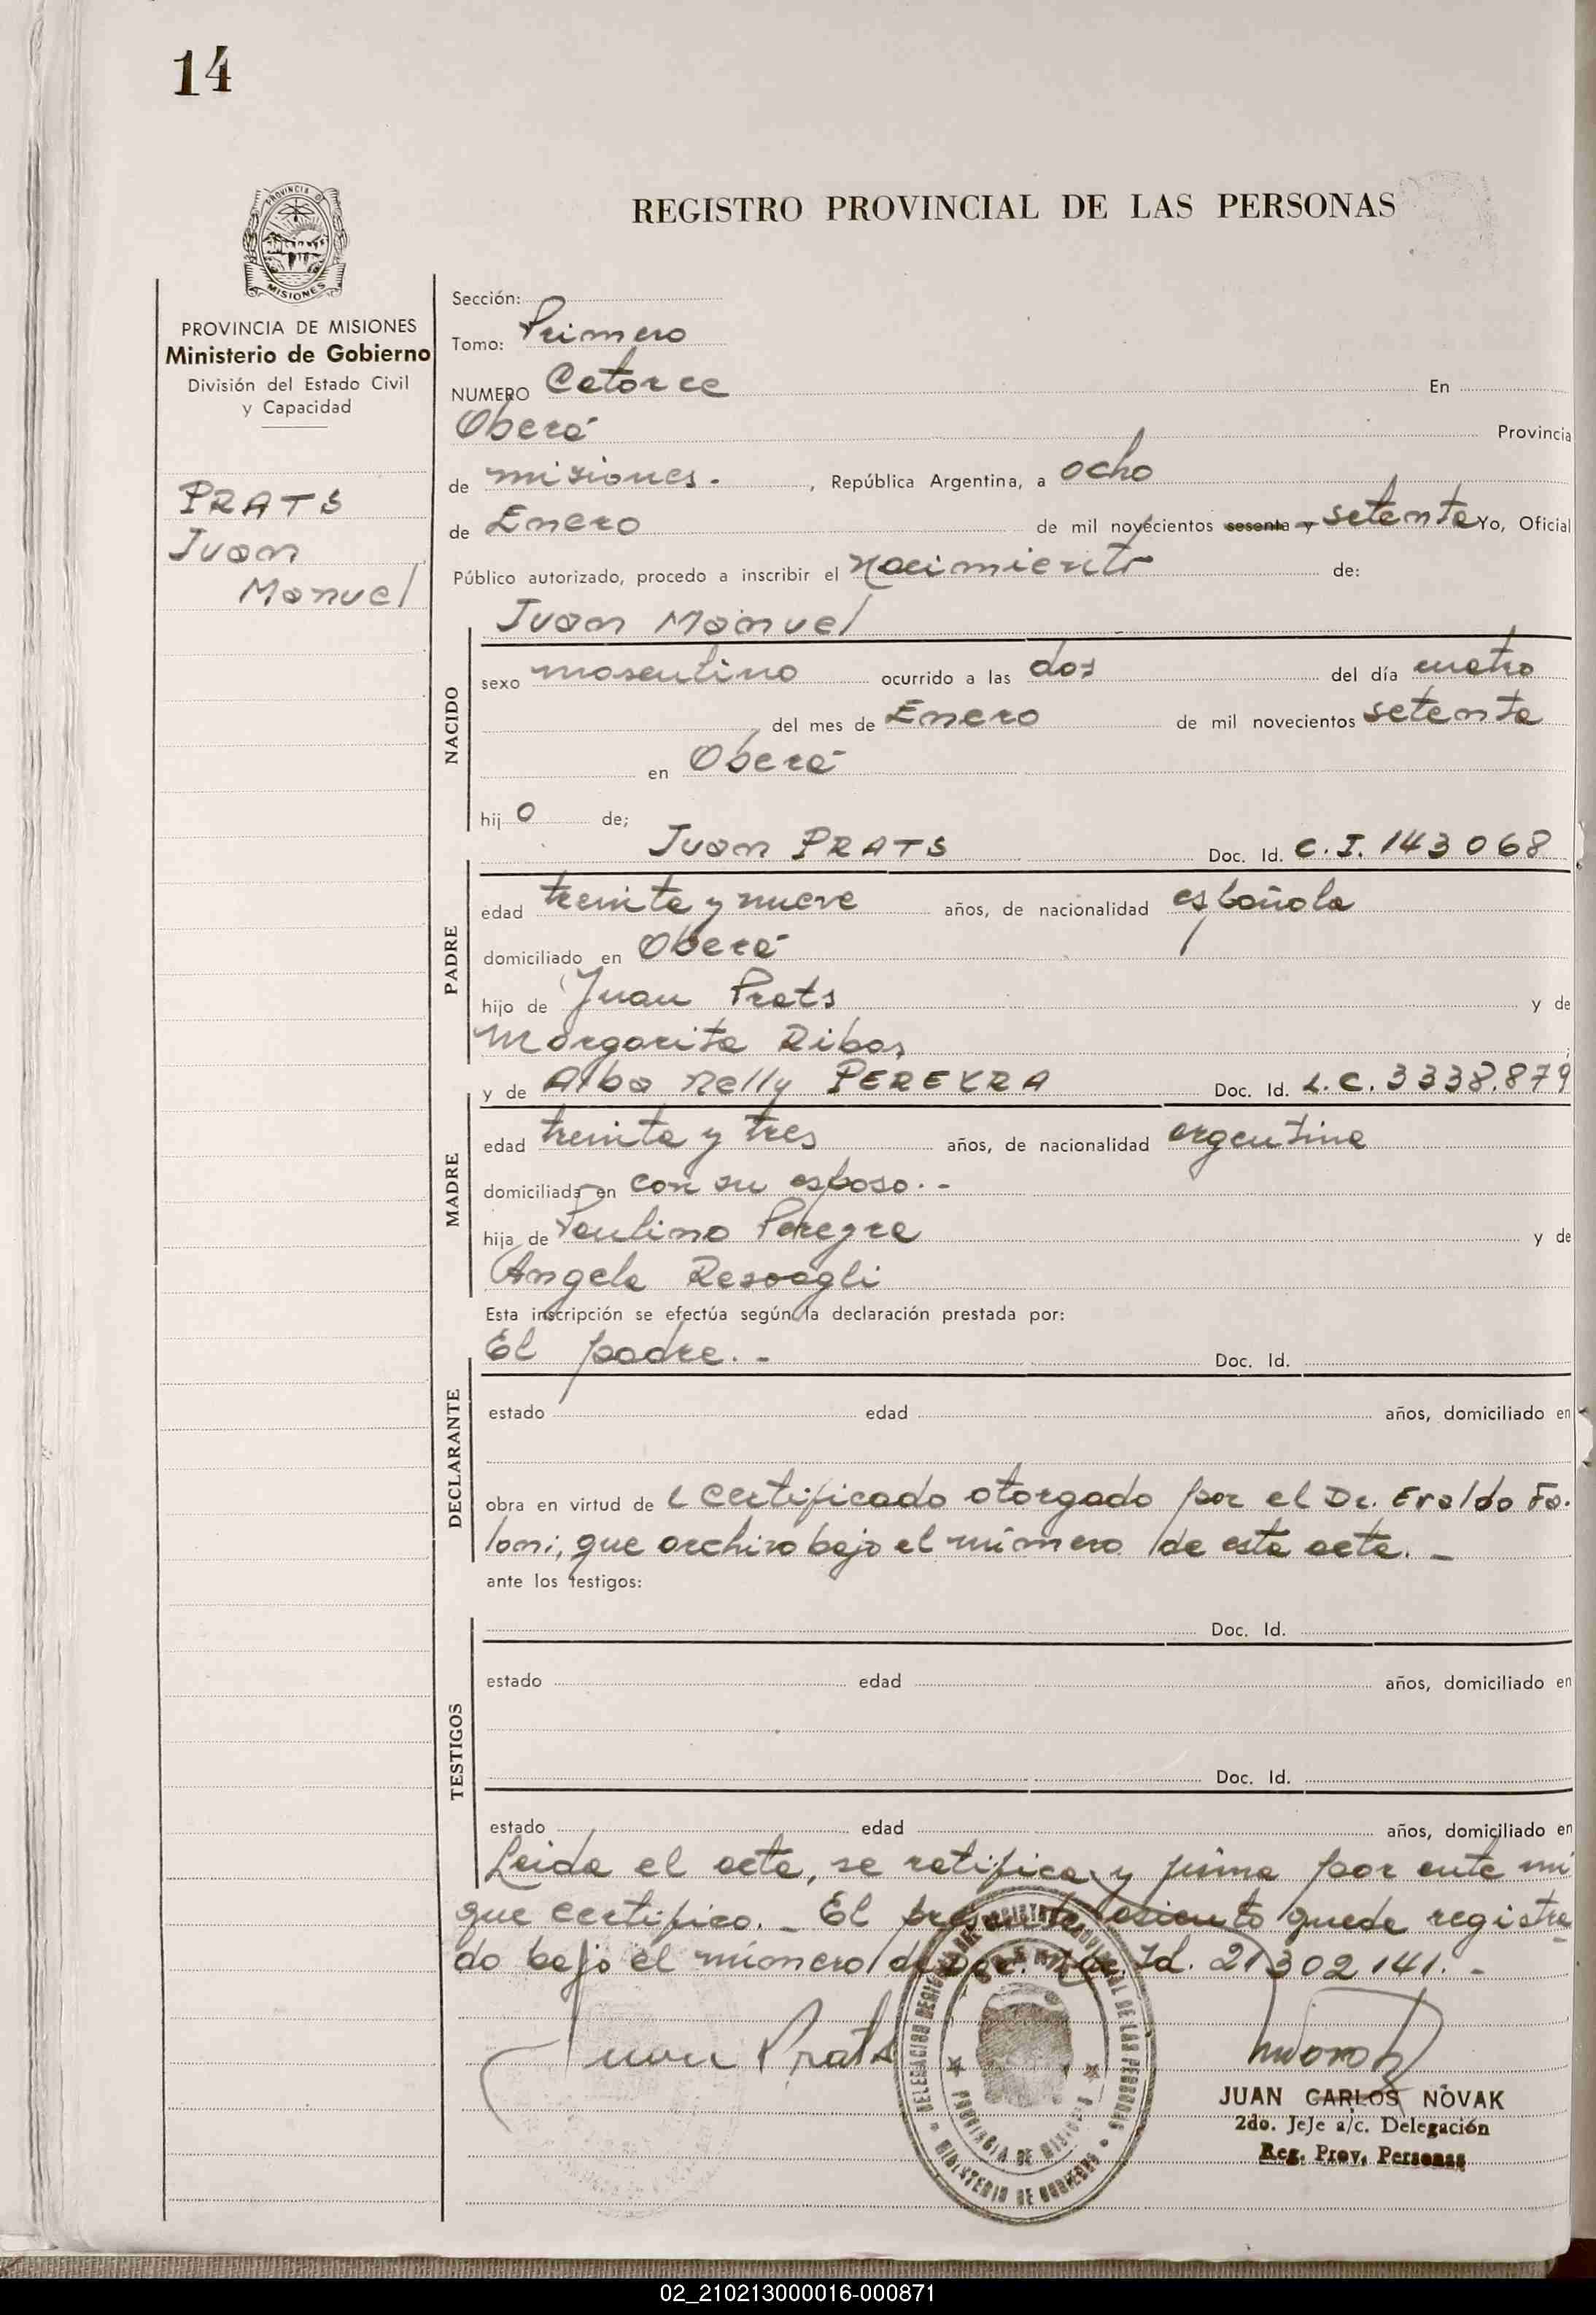 14
PROVINCIA DE
MISIONES
REGISTRO PROVINCIAL DE LAS PERSONAS
PROVINCIA DE MISIONES
Ministerio de Gobierno
División del Estado Civil
y Capacidad
PRATS
Juan
Manuel
Sección:
Tomo: Primero
NUMERO Catorce En
Oberá Provincia
de misiones. , República Argentina, a ocho
de Enero de mil novecientos sesenta y setenta Yo, Oficial
Público autorizado, procedo a inscribir el Nacimiento de:
Juan Manuel
NACIDO
sexo masculino ocurrido a las dos del día cuatro
, del mes de Enero de mil novecientos setenta
en Oberá
hijo de;
Juan PRATS Doc. Id. C.I. 143068
PADRE
edad treinta y nueve años, de nacionalidad española
domiciliado en Oberá
hijo de Juan Prats y de
Margarita Ribas ;
y de Alba Nelly PEREYRA Doc. Id. L.C. 3338.879
MADRE
edad treinta y tres años, de nacionalidad argentina
domiciliada en con su esposo.-
hija de Paulino Pereyra y de
Angela
Esta inscripción se efectúa según la declaración prestada por:
El padre.- Doc. Id.
DECLARANTE
estado edad años, domiciliado en
obra en virtud de l certificado otorgado por el Dr. Eraldo Fa-
loni, que archivo bajo el número de esta acta.-
ante los testigos:
Doc. Id.
TESTIGOS
estado edad años, domiciliado en
Doc. Id.
estado edad años, domiciliado en
Leida el acta, se ratifica y firma por ante mi
que certifico.- El presente asiento queda registra-
do bajo el número de Doc. Nac. Id. 21302141.-
Juan Prats
DELEGACION REGISTRO PROVINCIAL DE LAS PERSONAS
PROVINCIA DE MISIONES
MINISTERIO DE GOBIERNO
JUAN CARLOS NOVAK
2do. Jefe a/c. Delegación
Reg. Prov. Personas
02_210213000016-000871